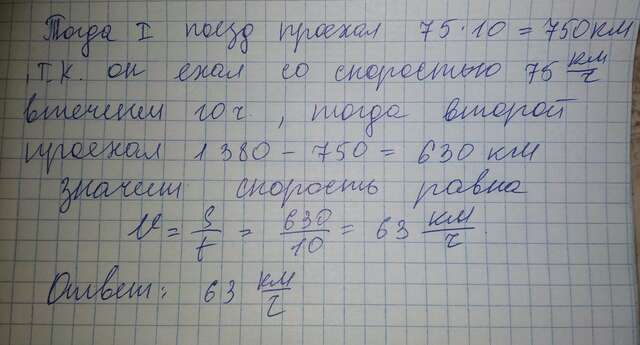 Тогда I поезд проехал 75·10=750км
, т.к. он ехал со скоростью 75 км/ч
втечении 10ч, тогда второй
проехал 1380-750=630 км
значит скорость равна
V = S/t = 630/10 = 63 км/ч.
Ответ: 63 км/ч